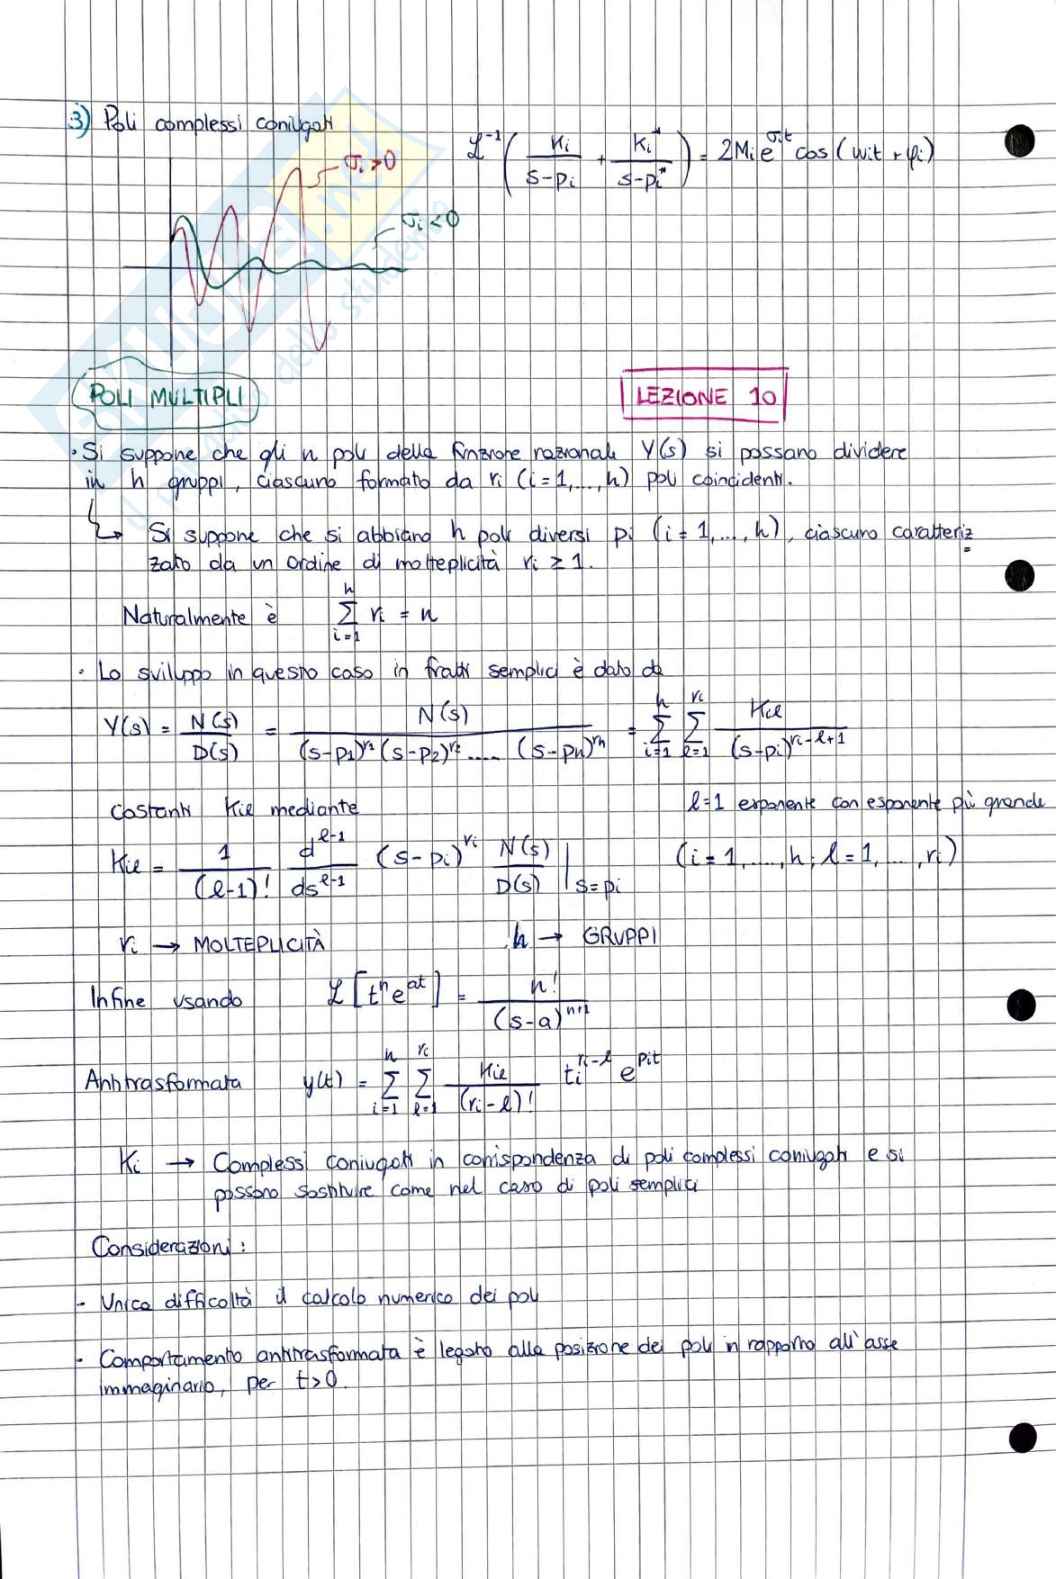 3) Poli complessi coniugati
L⁻¹ ( Ki / (s-pi) + Ki* / (s-pi*) ) = 2Mi e^σit cos(wit + φi)
σi>0
σi<0
POLI MULTIPLI
LEZIONE 10
· Si suppone che gli n poli della funzione razionale Y(s) si possano dividere
in h gruppi, ciascuno formato da ri (i=1,...,h) poli coincidenti.
↳ Si suppone che si abbiano h poli diversi pi (i=1,...,h), ciascuno caratteriz
zato da un ordine di molteplicità ri ≥ 1.
Naturalmente è Σ_{i=1}^{h} ri = n
· Lo sviluppo in questo caso in fratti semplici è dato da
Y(s) = N(s) / D(s) = N(s) / (s-p1)^r1 (s-p2)^r2 ..... (s-ph)^rh = Σ_{i=1}^{h} Σ_{ℓ=1}^{ri} Kiℓ / (s-pi)^{ri-ℓ+1}
Costanti Kiℓ mediante
ℓ=1 esponente con esponente più grande
Kiℓ = 1 / (ℓ-1)! d^{ℓ-1} / ds^{ℓ-1} (s-pi)^ri N(s) / D(s) |s=pi
(i=1,....,h; ℓ=1,...,ri)
ri → MOLTEPLICITÀ
h → GRUPPI
Infine usando L[tⁿe^at] = n! / (s-a)^{n+1}
Antitrasformata y(t) = Σ_{i=1}^{h} Σ_{ℓ=1}^{ri} Kiℓ / (ri-ℓ)! ti^{ri-ℓ} e^{pit}
Ki → Complessi coniugati in corrispondenza di poli complessi coniugati e si
possono sostituire come nel caso di poli semplici
Considerazioni:
- Unica difficoltà il calcolo numerico dei poli
- Comportamento antitrasformata è legato alla posizione dei poli in rapporto all'asse
immaginario, per t>0.